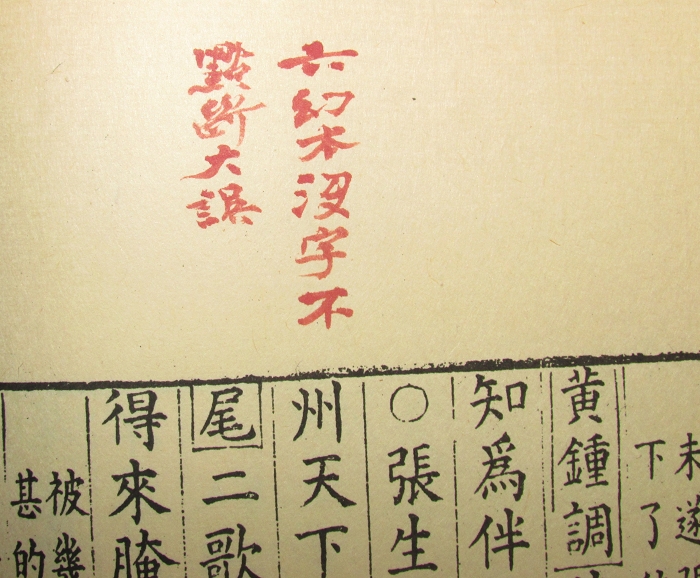 六幻本沒字不
點斷大誤
未遂
下了
黃鍾調
知為伴
○張生
州天下
尾二歌
得來腌
被幾
甚的